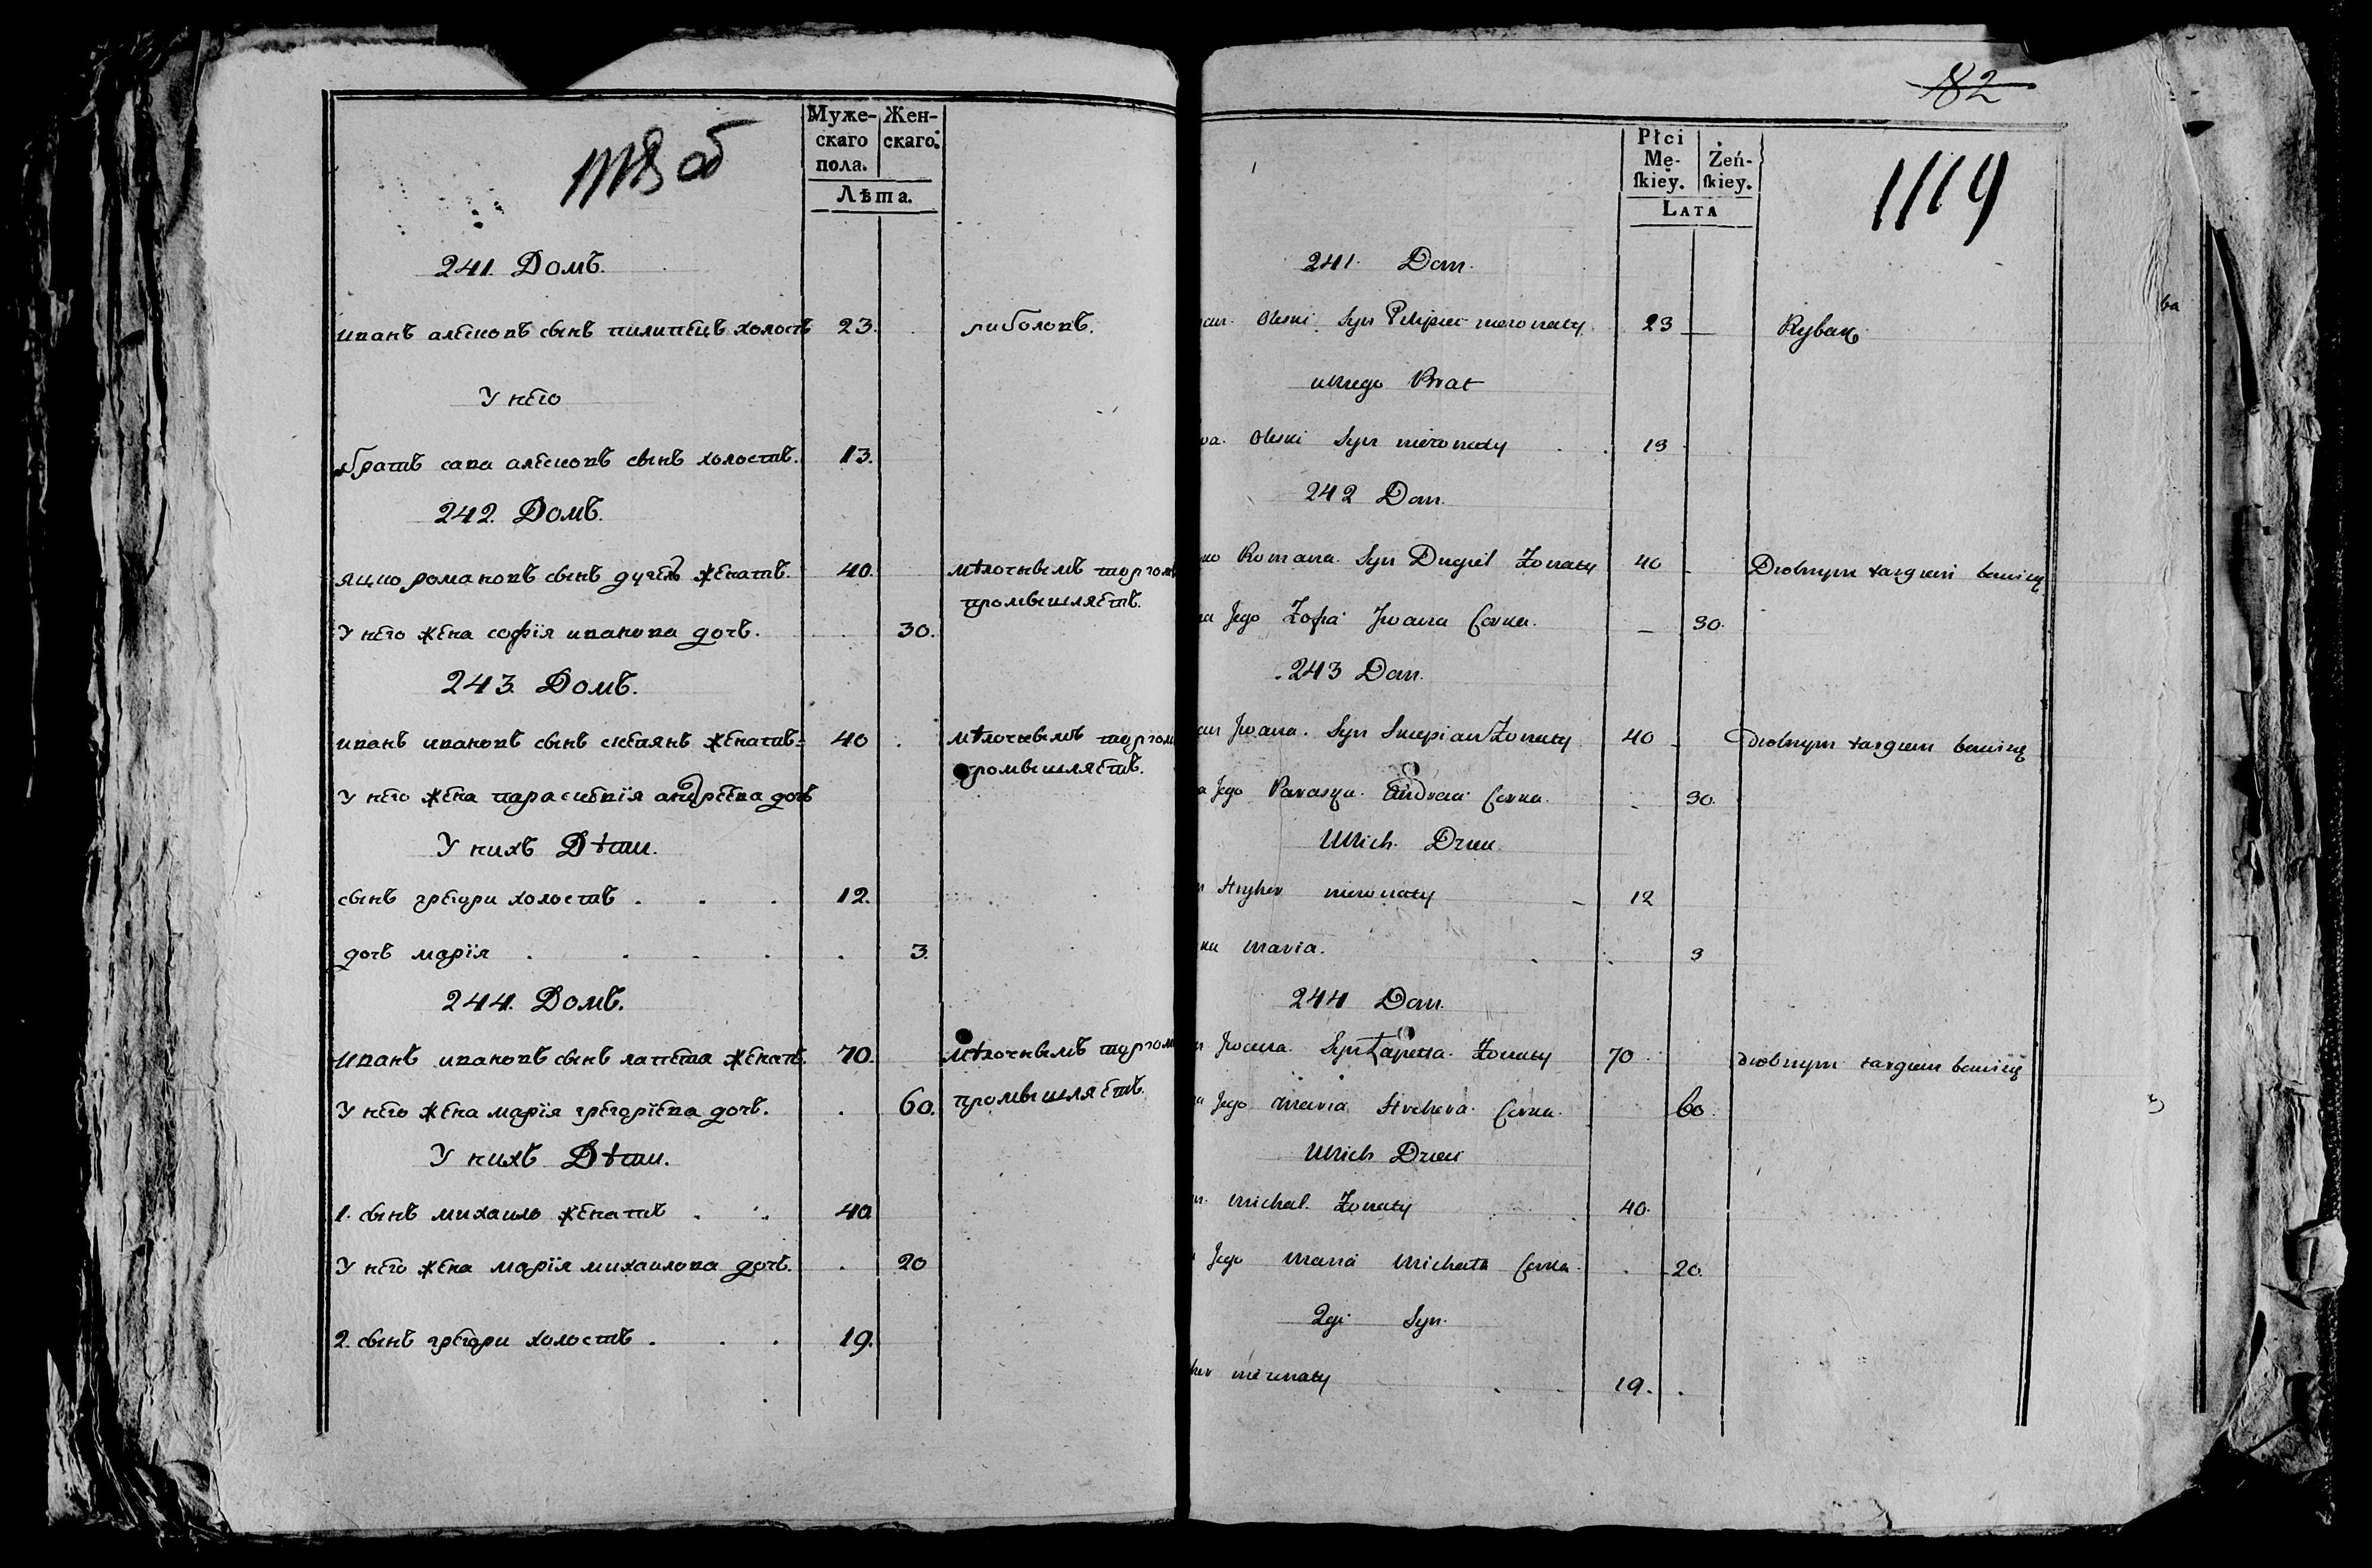 1118 об
Муже-
скаго
пола.
Жен-
скаго.
Лѣта.
241. Домъ.
иванъ алексѣевъ сынъ пилипецъ холостъ 23. риболовъ.
У него
братъ сава сынъ холостъ. 13.
242. Домъ.
яцко романовъ сынъ дучел женатъ. 40. мѣлочнымъ торгом
промышляетъ.
У него жена софїя иванова дочь. 30.
243. Домъ.
иванъ ивановъ сынъ женатъ 40 мѣлочнымъ торгом
промышляетъ.
У него жена параскевїя андреева дочь
У нихъ Дѣти.
сынъ грегори холостъ . . . 12.
дочь марїя . . . . . 3.
244. Домъ.
иванъ ивановъ сынъ лапета женатъ. 70. мѣлочнымъ торгом
У него жена марїя грегорїева дочь. . 60. промышляетъ.
У нихъ Дѣти.
1. сынъ михаило женатъ . . . 40
У него жена марїя михаилова дочь. . 20
2. сынъ грегори холостъ . . . 19.
82
Płci
Mę-
ſkiey.
Żeń-
ſkiey.
LATA
1119
241. Dom.
Oleski Syn Pilipiec niezonaty. 23 Rybak
uniego Brat
Oleski Syn niezonaty . . 13
242 Dom.
Romana Syn Zonaty 40 Drobnym targiem bawiący
Jego Zofia Jwana Corka. 30.
243 Dom.
Jwana. Syn Zonaty 40 Drobnym targiem bawiący
Jego Paraska Andreia Corka. 30.
Unich Dzieci
Hryhor niezonaty 12
Maria. 3
244 Dom.
Jwana Syn Łapetta Zonaty 70 drobnym targiem bawiący
Jego Maria Corka. 60.
Unich Dzieci
Michał Zonaty 40.
Jego Maria Michała Corka . 20.
2gi Syn
niezonaty 19.